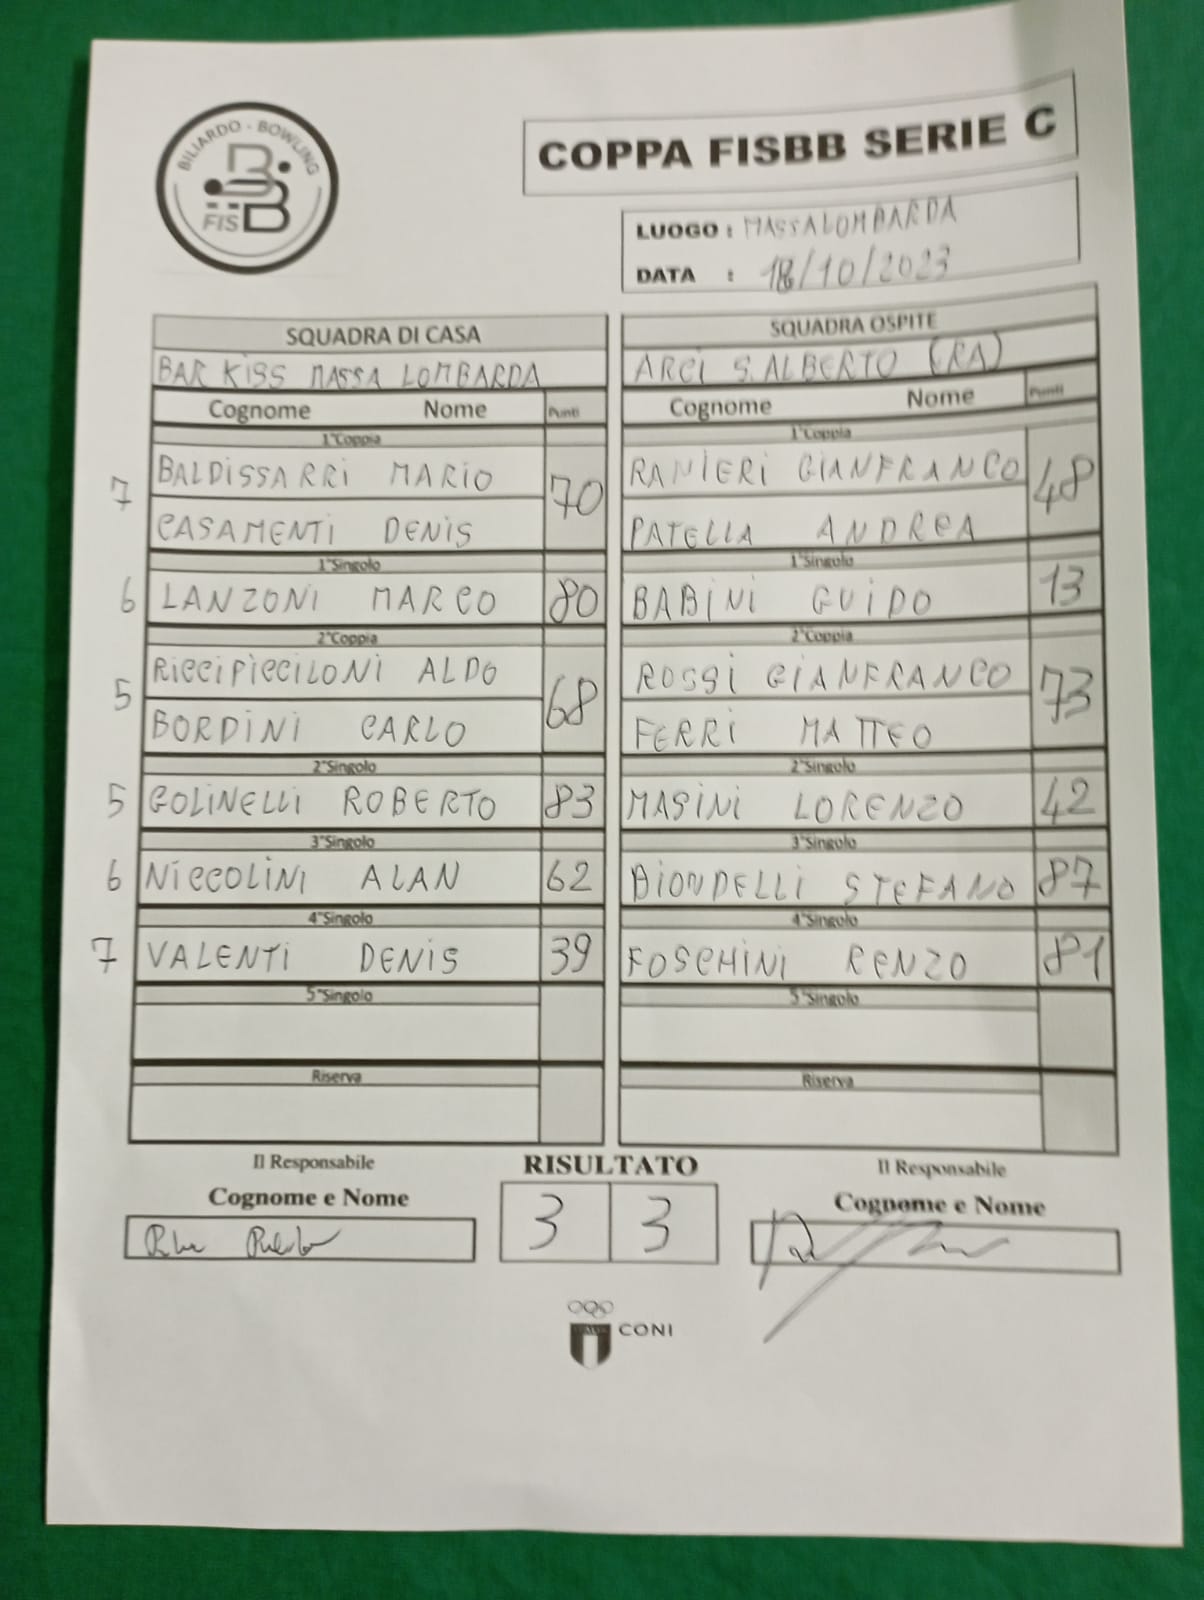 BILIARDO - BOWLING
FISBB
COPPA FISBB SERIE C
LUOGO : MASSALOMBARDA
DATA : 18/10/2023
SQUADRA DI CASA
BAR KISS MASSA LOMBARDA
Cognome Nome Punti
1°Coppia
7 BALDISSARRI MARIO 70
CASAMENTI DENIS
1°Singolo
6 LANZONI MARCO 80
2°Coppia
5 RICCIPICCILONI ALDO 68
BORDINI CARLO
2°Singolo
5 GOLINELLI ROBERTO 83
3°Singolo
6 NICCOLINI ALAN 62
4°Singolo
7 VALENTI DENIS 39
5°Singolo
Riserva
SQUADRA OSPITE
ARCI S.ALBERTO (RA)
Cognome Nome Punti
1°Coppia
RANIERI GIANFRANCO 48
PATELLA ANDREA
1°Singolo
BABINI GUIDO 13
2°Coppia
ROSSI GIANFRANCO 73
FERRI MATTEO
2°Singolo
MASINI LORENZO 42
3°Singolo
BIONDELLI STEFANO 87
4°Singolo
FOSCHINI RENZO 81
5°Singolo
Riserva
Il Responsabile
Cognome e Nome
RISULTATO
3 3
Il Responsabile
Cognome e Nome
CONI